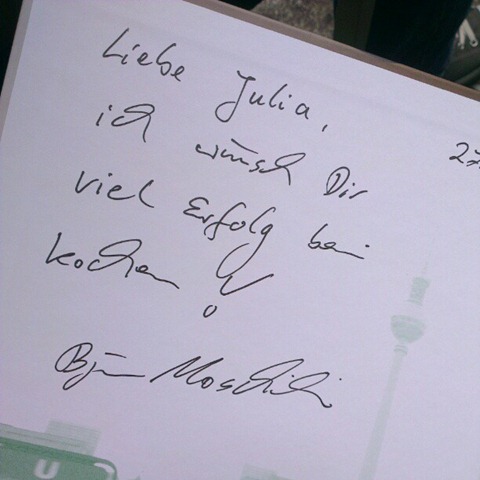 Liebe Julia,
27.
ich wünsch Dir
viel Erfolg beim
kochen!
Björn Moschinski
U